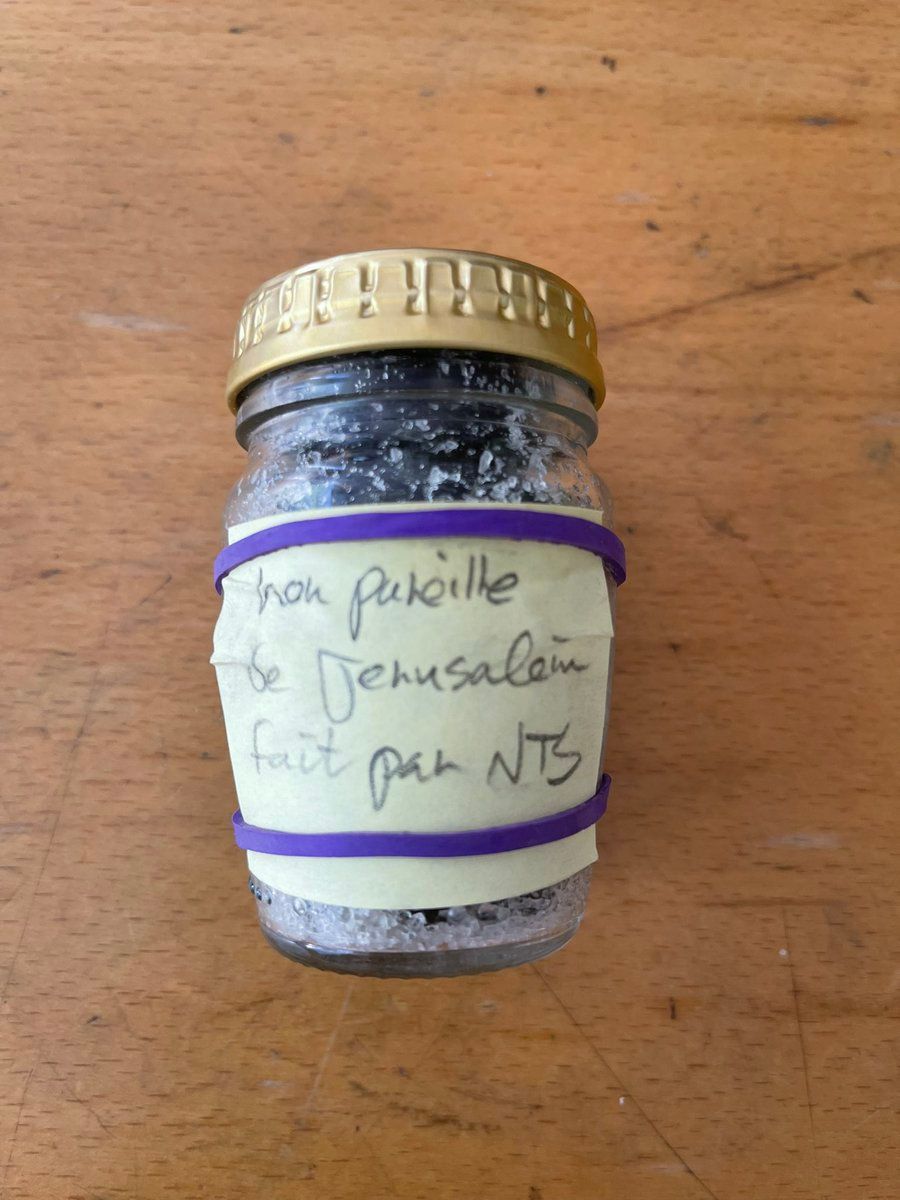 non pareille
de Jerusalem
fait par NTS